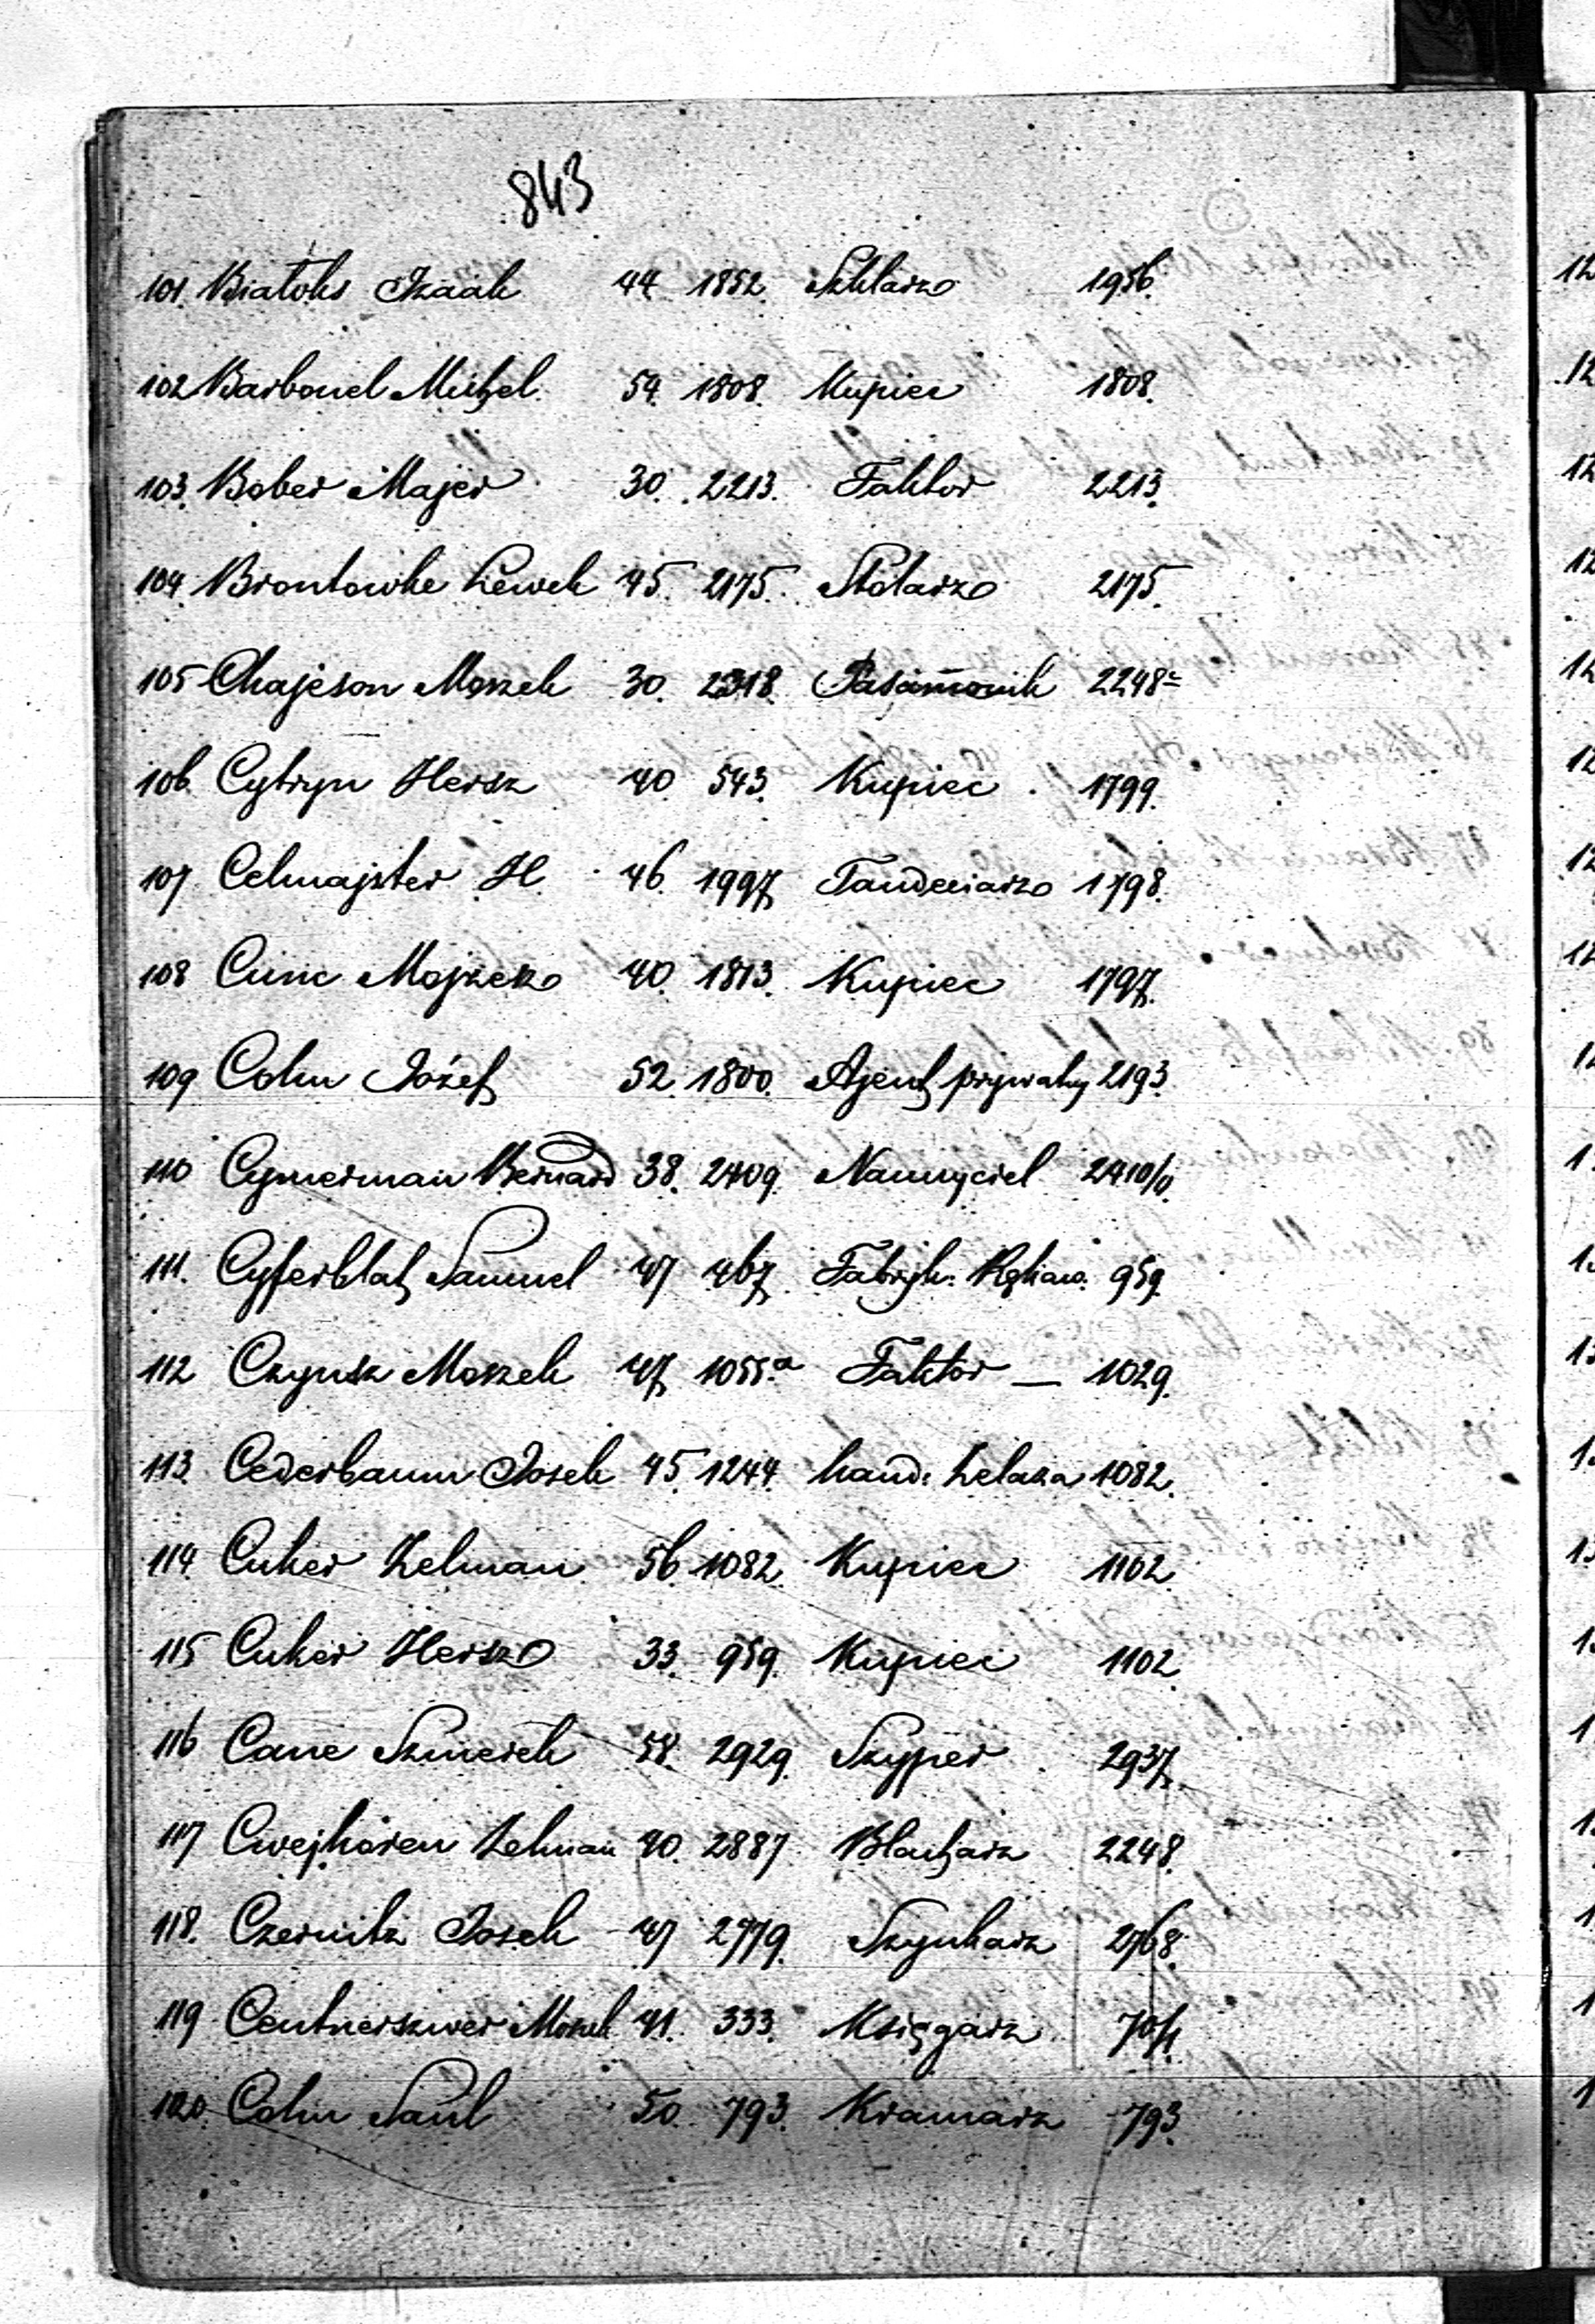 843
101. Białoks Izaak 44 1852. Szklarz 1956.
102 Barbonel Michel 54. 1808. Kupiec 1808.
103. Bober Majer 30. 2213. Faktor 2213.
104. Brontowke Lewek 45. 2175. Stolarz 2175.
105 Chajeson Moszek 30. 2318. Pasamonik 2248
106. Cytryn Hersz 40. 543. Kupiec 1799.
107. Celmajster H. 46. 1997. Tandeciarz 1798.
108 Majzesz 40. 1813. Kupiec 1797.
109 Cohn Józef 52. 1800. Ajent prywatny 2193.
110 Cymerman Bernard 38. 2409. Nauczyciel 2410/
111. Cyferblat Samuel 47 467. Fabryk. 959.
112 Czynsz Moszek 47. 1055.a Faktor — 1029.
113. Cederbaum Josek 45. 1244. hand: żelaza 1082.
114 Cuker Zelman 56. 1082. Kupiec 1102.
115 Cuker Hersz 33. 959. Kupiec 1102.
116 Cane Szmerek 58. 2929. Szyper 2937.
117 Cwejhoren Zelman 40. 2887 Blacharz 2248.
118. Czernitz Josek 47 2779. Szynkarz 2768.
119 Centnerszwer Moszek 41. 333. Księgarz
120. Cohn Saul 50. 793. Kramarz 793.